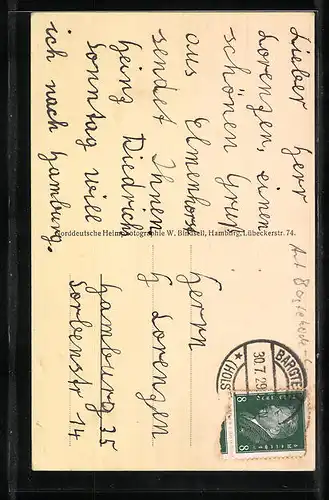 Lieber Herr
Lorenzen, einen
schönen Gruß
aus Elmenhorst
sendet Ihnen
Heinz Diedrich
Sonntag will
ich nach Hamburg.
Norddeutsche Heimphotographie W. Birdsell, Hamburg, Lübeckerstr. 74.
Herrn
H Lorenzen
Hamburg 25
Sorbenstr 14
Amt Bargteheide
BARGTE
30.7.29
* (HOLS
8 8